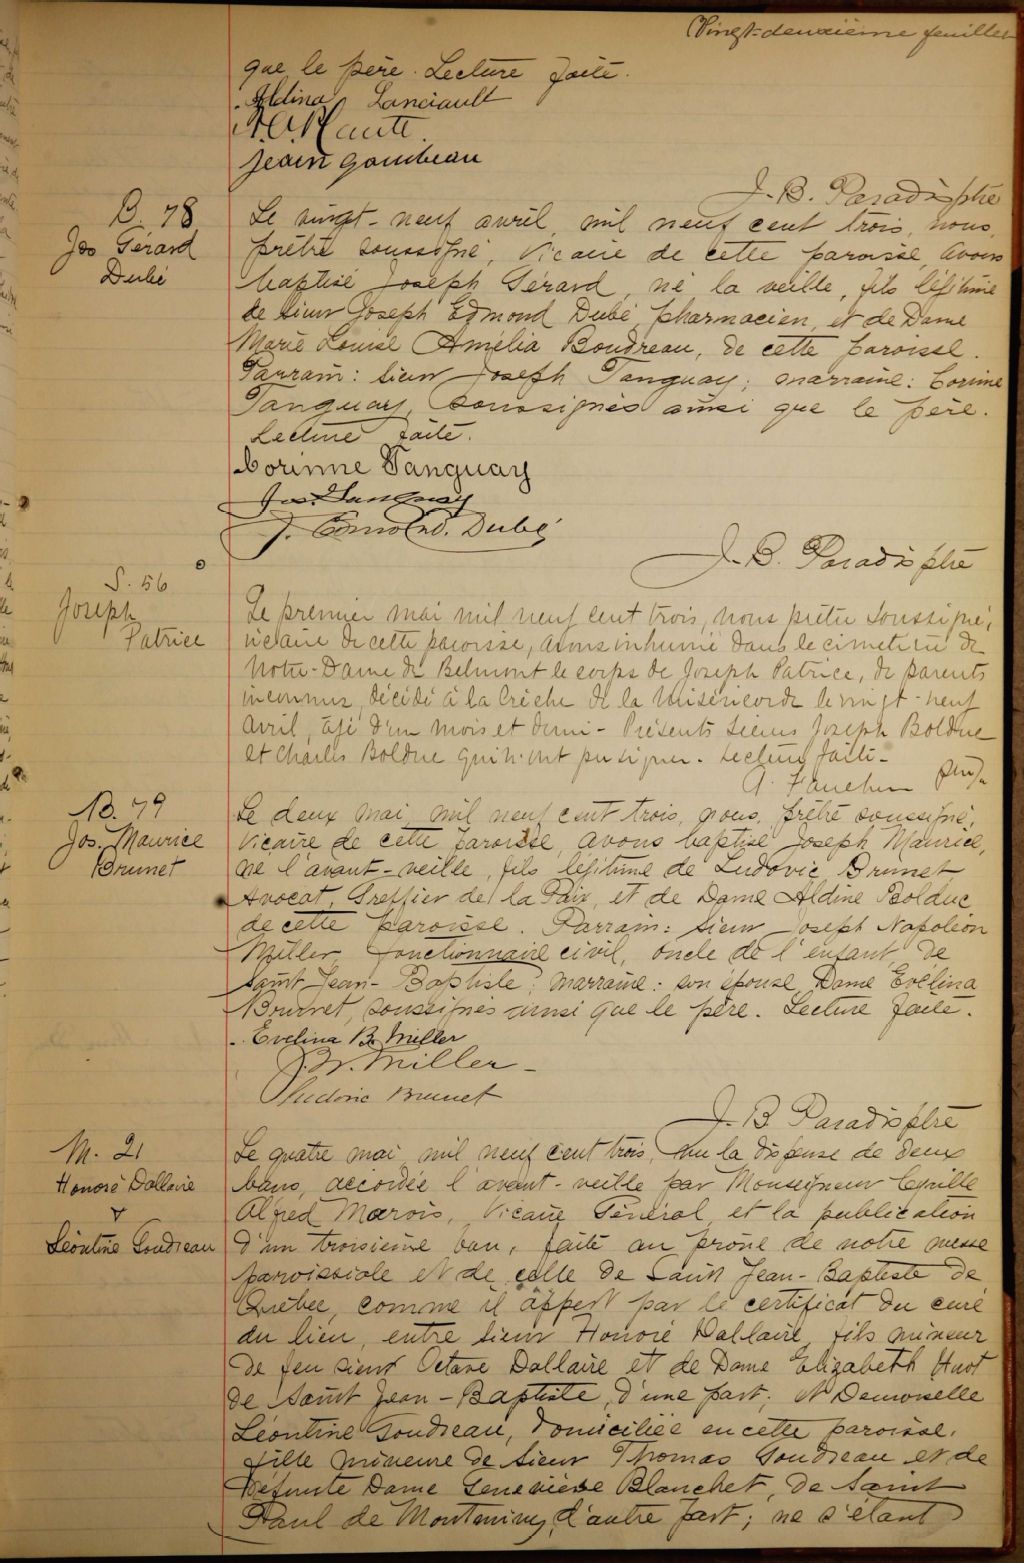 Vingt-deuxième feuillet
que le père. Lecture faite.
Aldina Lanciault
Jean Gaudreau
J. B. Paradis ptre
B. 78
Jos Gérard
Dubé
Le vingt-neuf avril, mil neuf cent trois, nous,
prêtre soussigné, vicaire de cette paroisse, avons
baptisé Joseph Gérard, né la veille, fils légitime
de sieur Joseph Edmond Dubé, pharmacien, et de Dame
Marie Louise Amélia Boudreau, de cette paroisse.
Parrain: sieur Joseph Tanguay; marraine: Corinne
Tanguay, soussignés ainsi que le père.
Lecture faite.
Corinne Tanguay
Jos. Tanguay
J. Edmond. Dubé
J. B. Paradis ptre
S. 56
Joseph
Patrice
Le premier mai mil neuf cent trois, nous prêtre soussigné,
vicaire de cette paroisse, avons inhumé dans le cimetière de
Notre-Dame de Belmont le corps de Joseph Patrice, de parents
inconnus, décédé à la Crèche de la Miséricorde le vingt-neuf
avril, âgé d'un mois et demi - Présents sieurs Joseph Bolduc
et Charles Bolduc qui n'ont pu signer. Lecture faite -
B. 79
Jos. Maurice
Brunet
Le deux mai, mil neuf cent trois, nous, prêtre soussigné,
vicaire de cette paroisse, avons baptisé Joseph Maurice,
né l'avant-veille, fils légitime de Ludovic Brunet
Avocat, Greffier de la Paix, et de Dame Aldine Bolduc
de cette paroisse. Parrain: sieur Joseph Napoléon
Miller, fonctionnaire civil, oncle de l'enfant, de
Saint Jean-Baptiste; marraine: son épouse, Dame Evélina
Brunet, soussignés ainsi que le père. Lecture faite.
Evelina B. Miller
J. N. Miller -
Ludovic Brunet
J. B Paradis ptre
M. 21
Honoré Dallaire
&
Léontine Goudreau
Le quatre mai, mil neuf cent trois, vu la dispense de deux
bans, accordée l'avant-veille par Monseigneur Cyrille
Alfred Marois, Vicaire Général, et la publication
d'un troisième ban, faite au prône de notre messe
paroissiale et de celle de Saint Jean-Baptiste de
Québec, comme il appert par le certificat du curé
du lieu, entre sieur Honoré Dallaire, fils mineur
de feu sieur Octave Dallaire et de Dame Elizabeth Huot
de Saint Jean-Baptiste, d'une part; et Demoiselle
Léontine Goudreau, domiciliée en cette paroisse,
fille mineure de sieur Thomas Goudreau et de
défunte Dame Geneviève Blanchet, de Saint
Paul de Montminy, d'autre part; ne s'étant